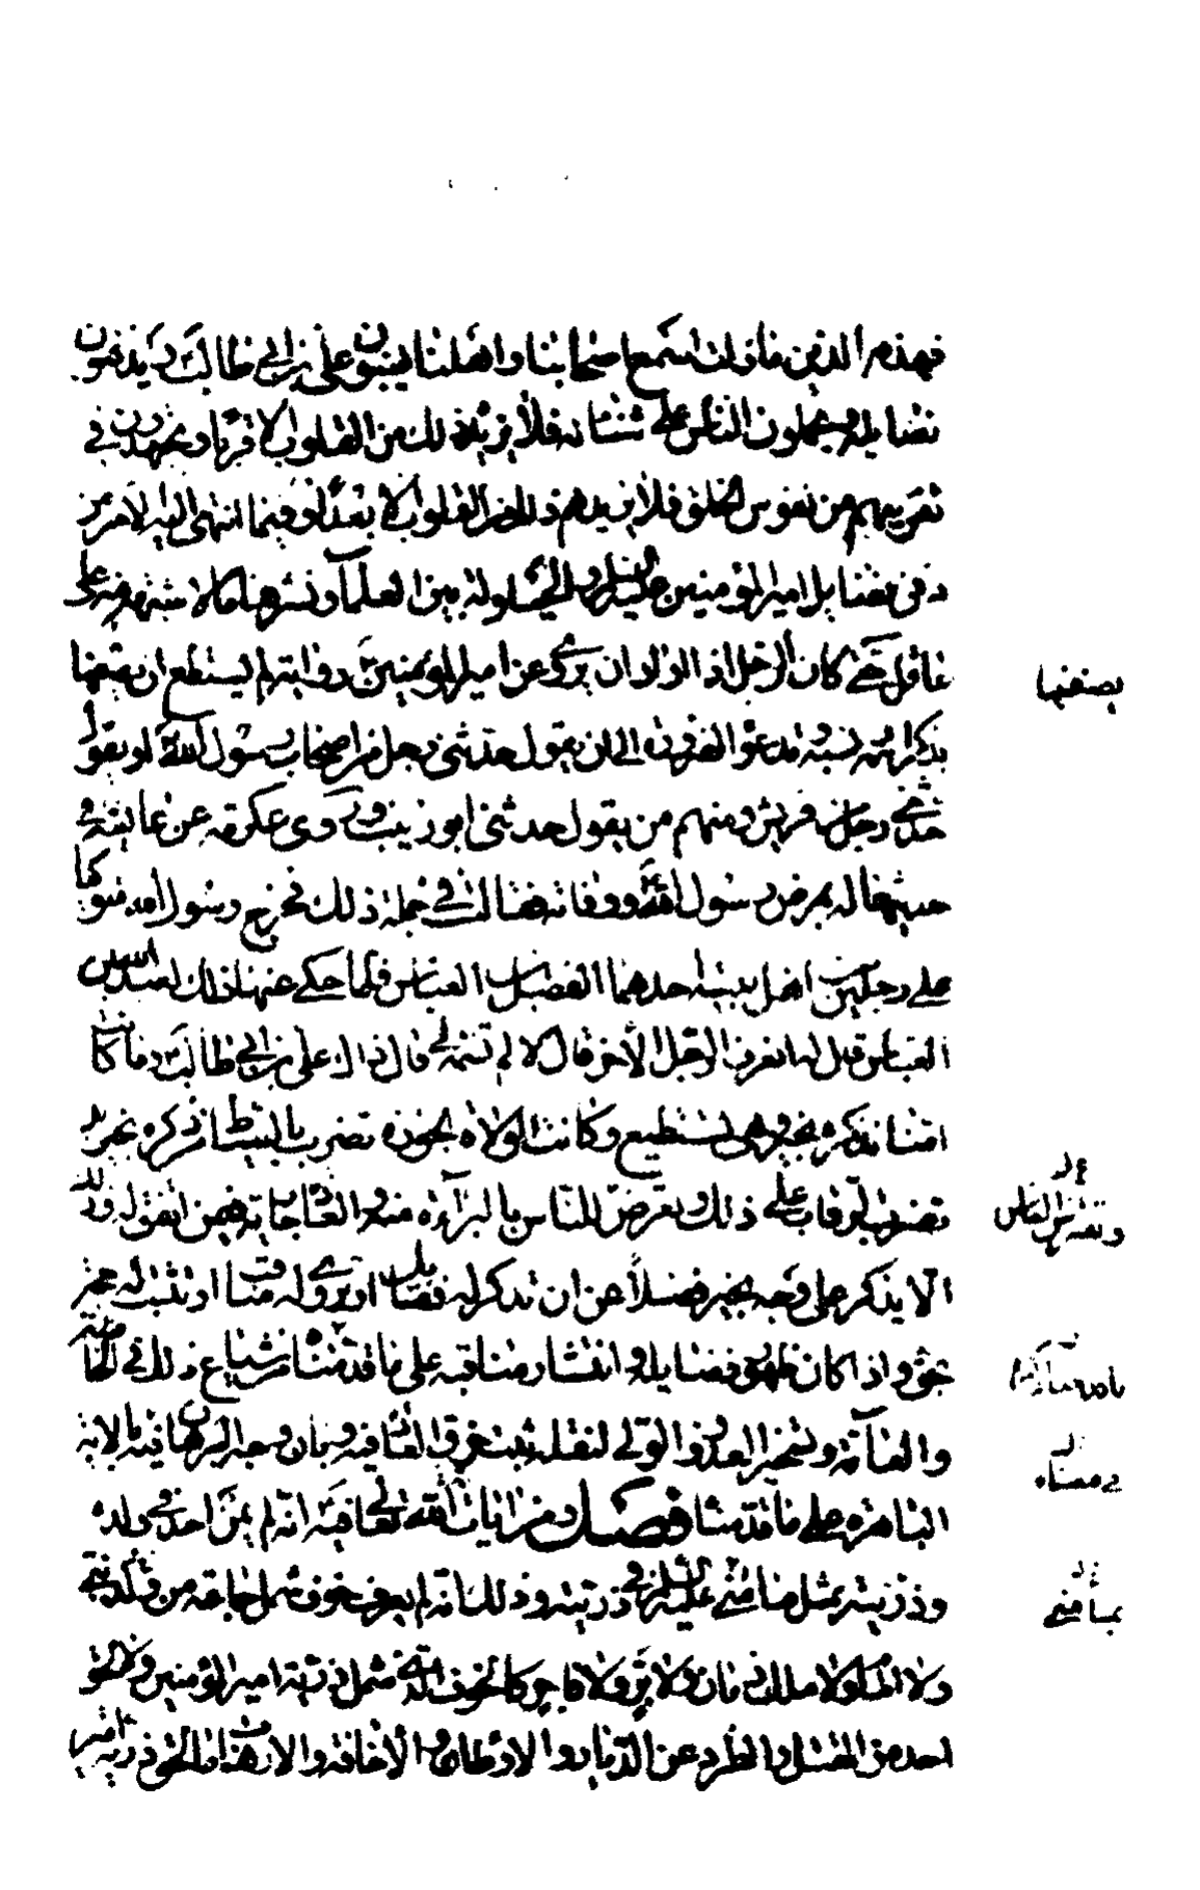 فهدم الدين ما زلت اسمع اصحابنا واهلنا يسبون علي بن ابي طالب ويدفنون
فضايله ويحملون الناس على شنئانه فلا يزيده ذلك من القلوب الا قربا ويجتهدون في
تقريبهم من نفوس الخلق فلا يزيدهم ذلك من القلوب الا بعدا وفيما انتهى اليه الامر من
دفن فضايل امير المؤمنين عليه السلام والحيلولة بين العلماء ونشرها ما لا شبهة فيه على
عاقل حتى كان الرجل اذا اراد ان يروي عن امير المؤمنين رواية لم يستطع ان يضيفها
بذكر اسمه ونسبه وتدعوه الضرورة الى ان يقول حدثني رجل من اصحاب رسول الله او يقول
حدثني رجل من قريش ومنهم من يقول حدثني ابو زينب وروى عكرمة عن عايشة في
حديثها له بمرض رسول الله ووفاته فقالت في جملة ذلك فخرج رسول الله متوكيا
على رجلين من اهل بيته احدهما الفضل بن العباس فلما حكى عنها ذلك لعبد الله بن
العباس قال له اتعرف الرجل الاخر قال لا لم تسمه لي قال ذاك علي بن ابي طالب وما كانت
امنا تذكره بخير وهي تستطيع وكانت الولاة الجورة تضرب بالسياط من ذكره بخير بل
تضرب الرقاب على ذلك وتعرض للناس بالبراءة منه والعادة جارية فيمن اتفق له ذلك
الا يذكر على وجه بخير فضلا عن ان تذكر له فضايل او تروى له مناقب او تثبت له حجة
بحق واذا كان ظهور فضايله وانتشار مناقبه على ما قدمناه من شياع ذلك في الخاصة
والعامة وتسخير العدو والولي لنقله ثبت خرق العادة فيه وبان وجه البرهان فيه بالاية
الباهرة على ما قدمناه فصل ومن ايات الله تعالى فيه انه لم يمن احد في ولده
وذريته بمثل ما مني عليه السلام في ذريته وذلك انه لم يعرف خوف شمل جماعة من ولد نبي
ولا امام ولا ملك زمان ولا بر ولا فاجر كالخوف الذي شمل ذرية امير المؤمنين ولا لحق
احد من القتل والطرد عن الديار والاوطان والاخافة والارهاب ما لحق ذرية امير
يضيفها
وتعترض الناس
بما مني